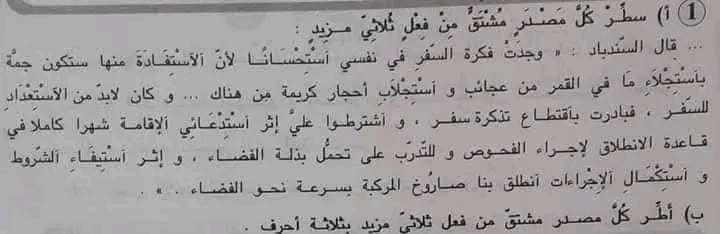 1 أ) سطِّرْ كُلَّ مَصْدَرٍ مُشْتَقٍّ مِنْ فِعْلٍ ثُلاثيّ مـزيدٍ :
... قال السّندباد : « وجدَتْ فكرة السّفر في نفسي اَسْتِحْسَانًا لأنّ اَلاَسْتِفَادَةَ منها ستكون جمّة
بِاَسْتِجْلاَءِ مَا في القمر من عجائب و اَسْتِجْلاَبِ أحجار كريمة مِن هناك ... و كان لابدّ من اَلاَسْتِعْدَادِ
للسّفر ، فبادرت بِاَقتطاع تذكرة سفر ، و اَشترطوا عليَّ إثر اَسْتِدْعَائي اَلإقامة شهرا كاملا في
قاعدة الانطلاق لإجراء الفحوص و للتّدرّب على تحمّل بذلة الفضاء ، و إثر اَسْتِيفَاءِ اَلشّروط
و اَسْتِكْمَالِ اَلإِجْراءات اَنطلق بنا صاروخ المركبة بسرعة نحو الفضاء . » .
ب) أطّر كُلّ مصدر مشتقّ من فعل ثلاثيّ مزيد بثلاثة أحرف .